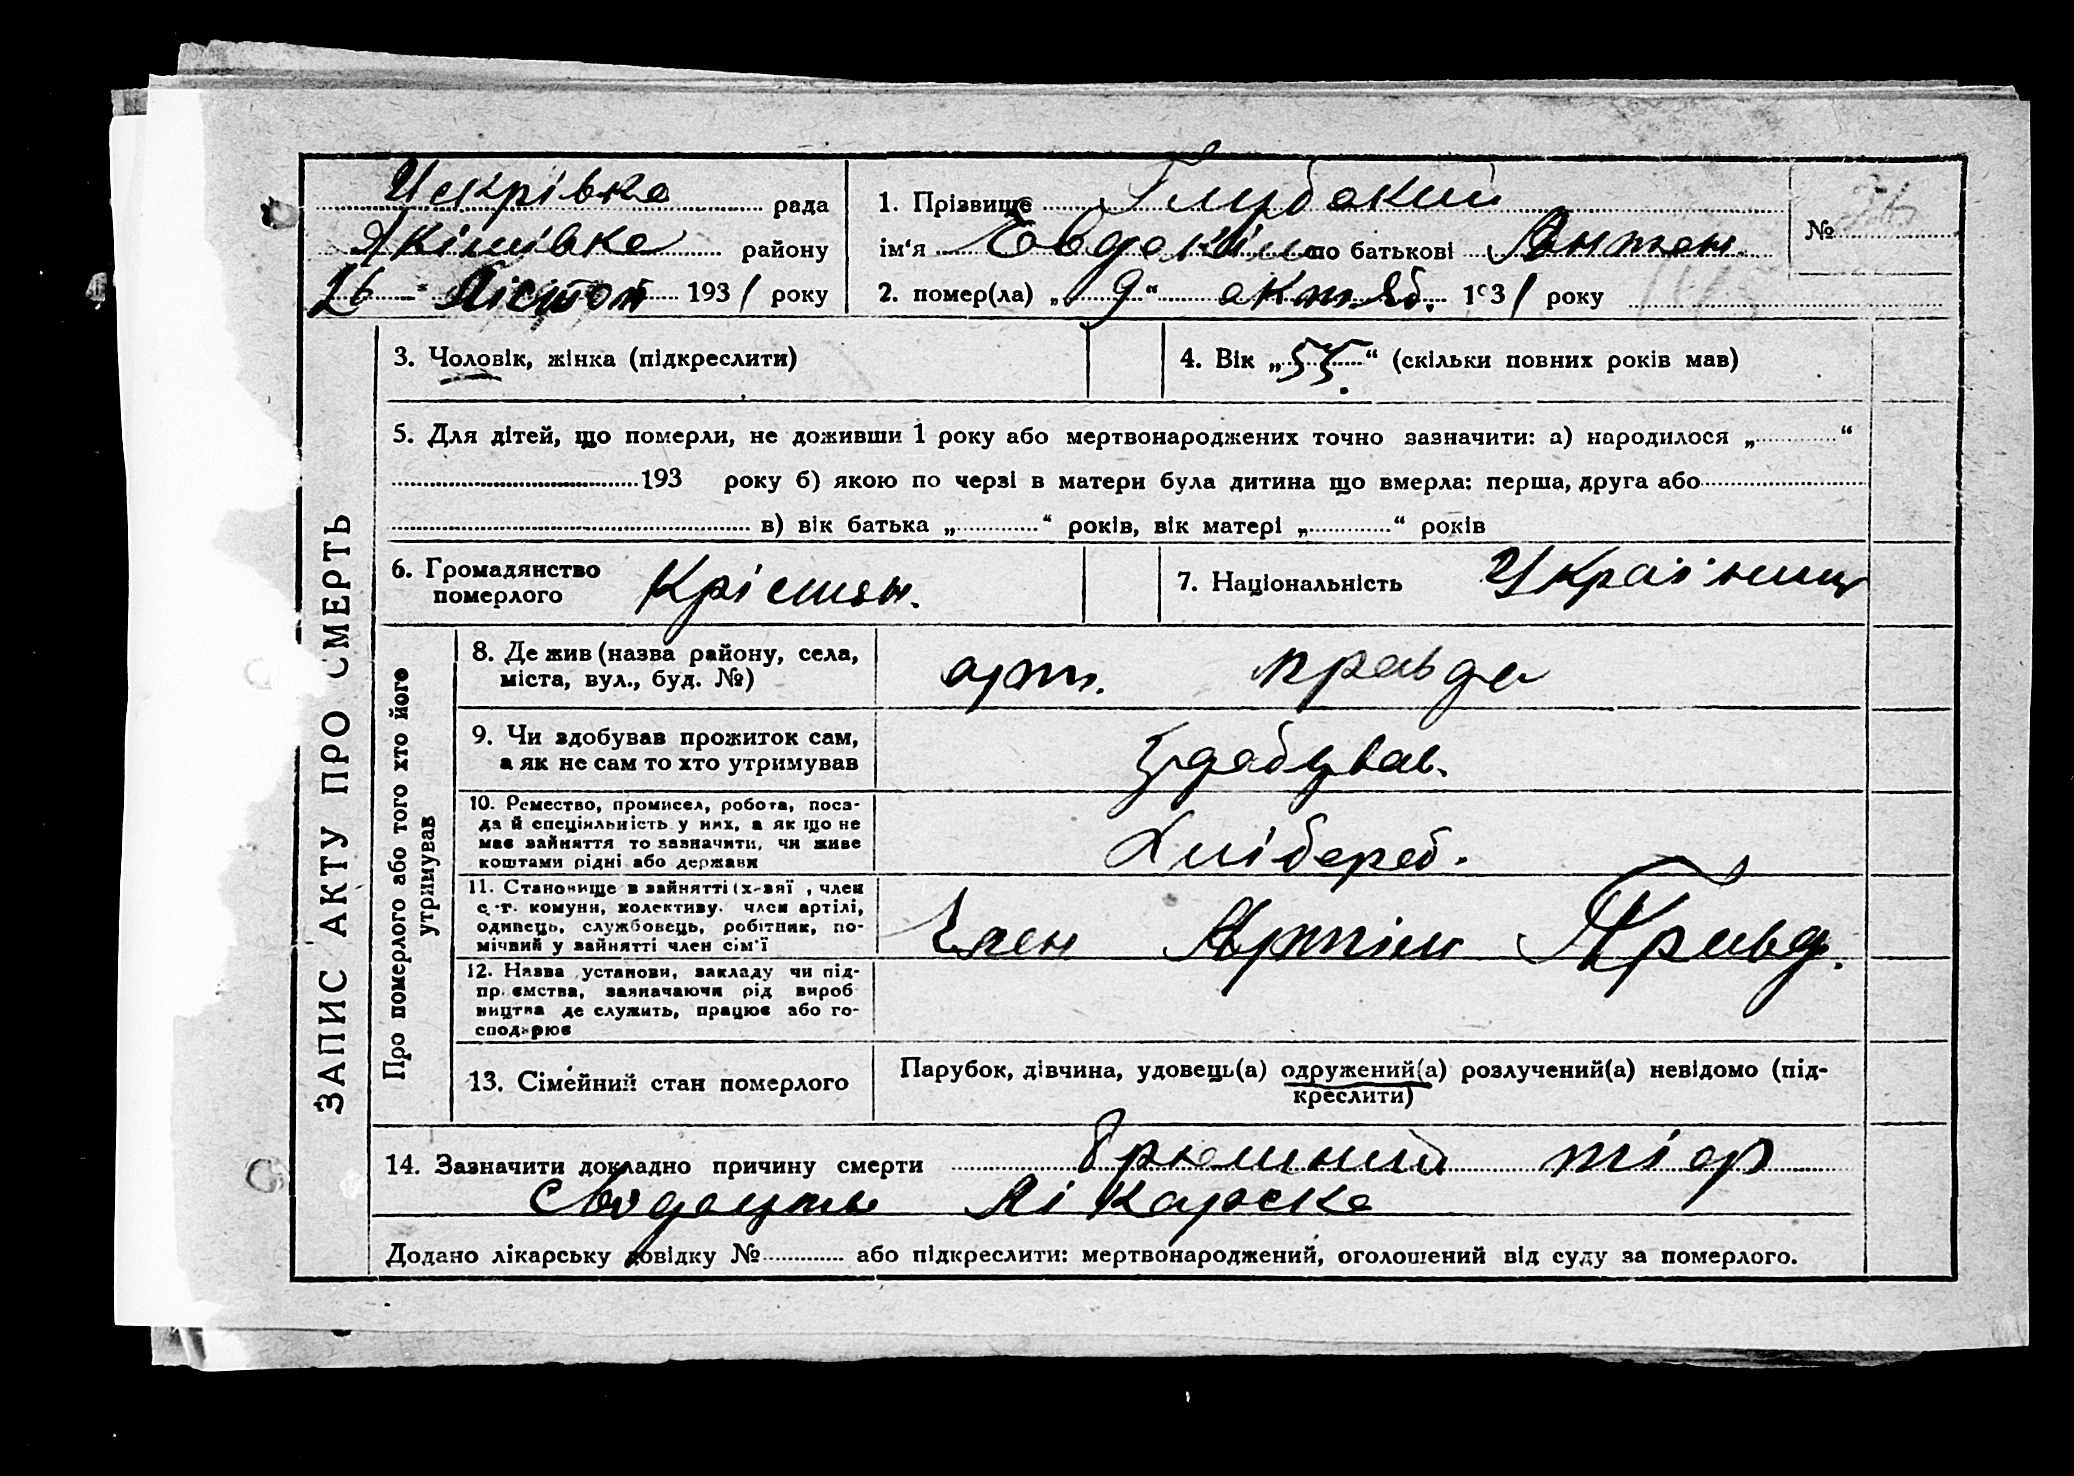 Искрівка рада
Якімівке району
26 Лістоп 1931 року
1. Прізвище Глубокий
ім‘я Евдоким по батькові Антон.
2. помер(ла) „9“ октяб. 1931 року
№ 26
ЗАПИС АКТУ ПРО СМЕРТЬ
3. Чоловік, жінка (підкреслити)
4. Вік „55.“ (скільки повних років мав)
5. Для дітей, що померли, не доживши 1 року або мертвонароджених точно зазначити: а) народилося „............“
193 року б) якою по черзі в матери була дитина що вмерла: перша, друга або
в) вік батька „............“ років, вік матері „............“ років
6. Громадянство
померлого Крістян.
7. Національність Україниц
Про померлого або того хто його
утримував
8. Де жив (назва району, села,
міста, вул., буд. №)
арт. правда
9. Чи здобував прожиток сам,
а як не сам то хто утримував
Здабував.
10. Ремество, промисел, робота, поса-
да й спеціяльність у них, а як що не
має зайняття то зазначити, чи живе
коштами рідні або держави
Хлібороб.
11. Становище в зайнятті (х-вяї , член
с.-г. комуни, колективу. член артілі,
одинець, службовець, робітник, по-
мічний у зайнятті член сім'ї
Член Артіли Правд.
12. Назва установи, закладу чи під-
приємства, зазначаючи рід вироб
ництва де служить, працює або го-
сподарює
13. Сімейний стан померлого
Парубок, дівчина, удовець(а) одружений(а) розлучений(а) невідомо (під-
креслити)
14. Зазначити докладно причину смерти брюшний тіф
лікарска
Додано лікарську довідку №............ або підкреслити: мертвонароджений, оголошений від суду за померлого.